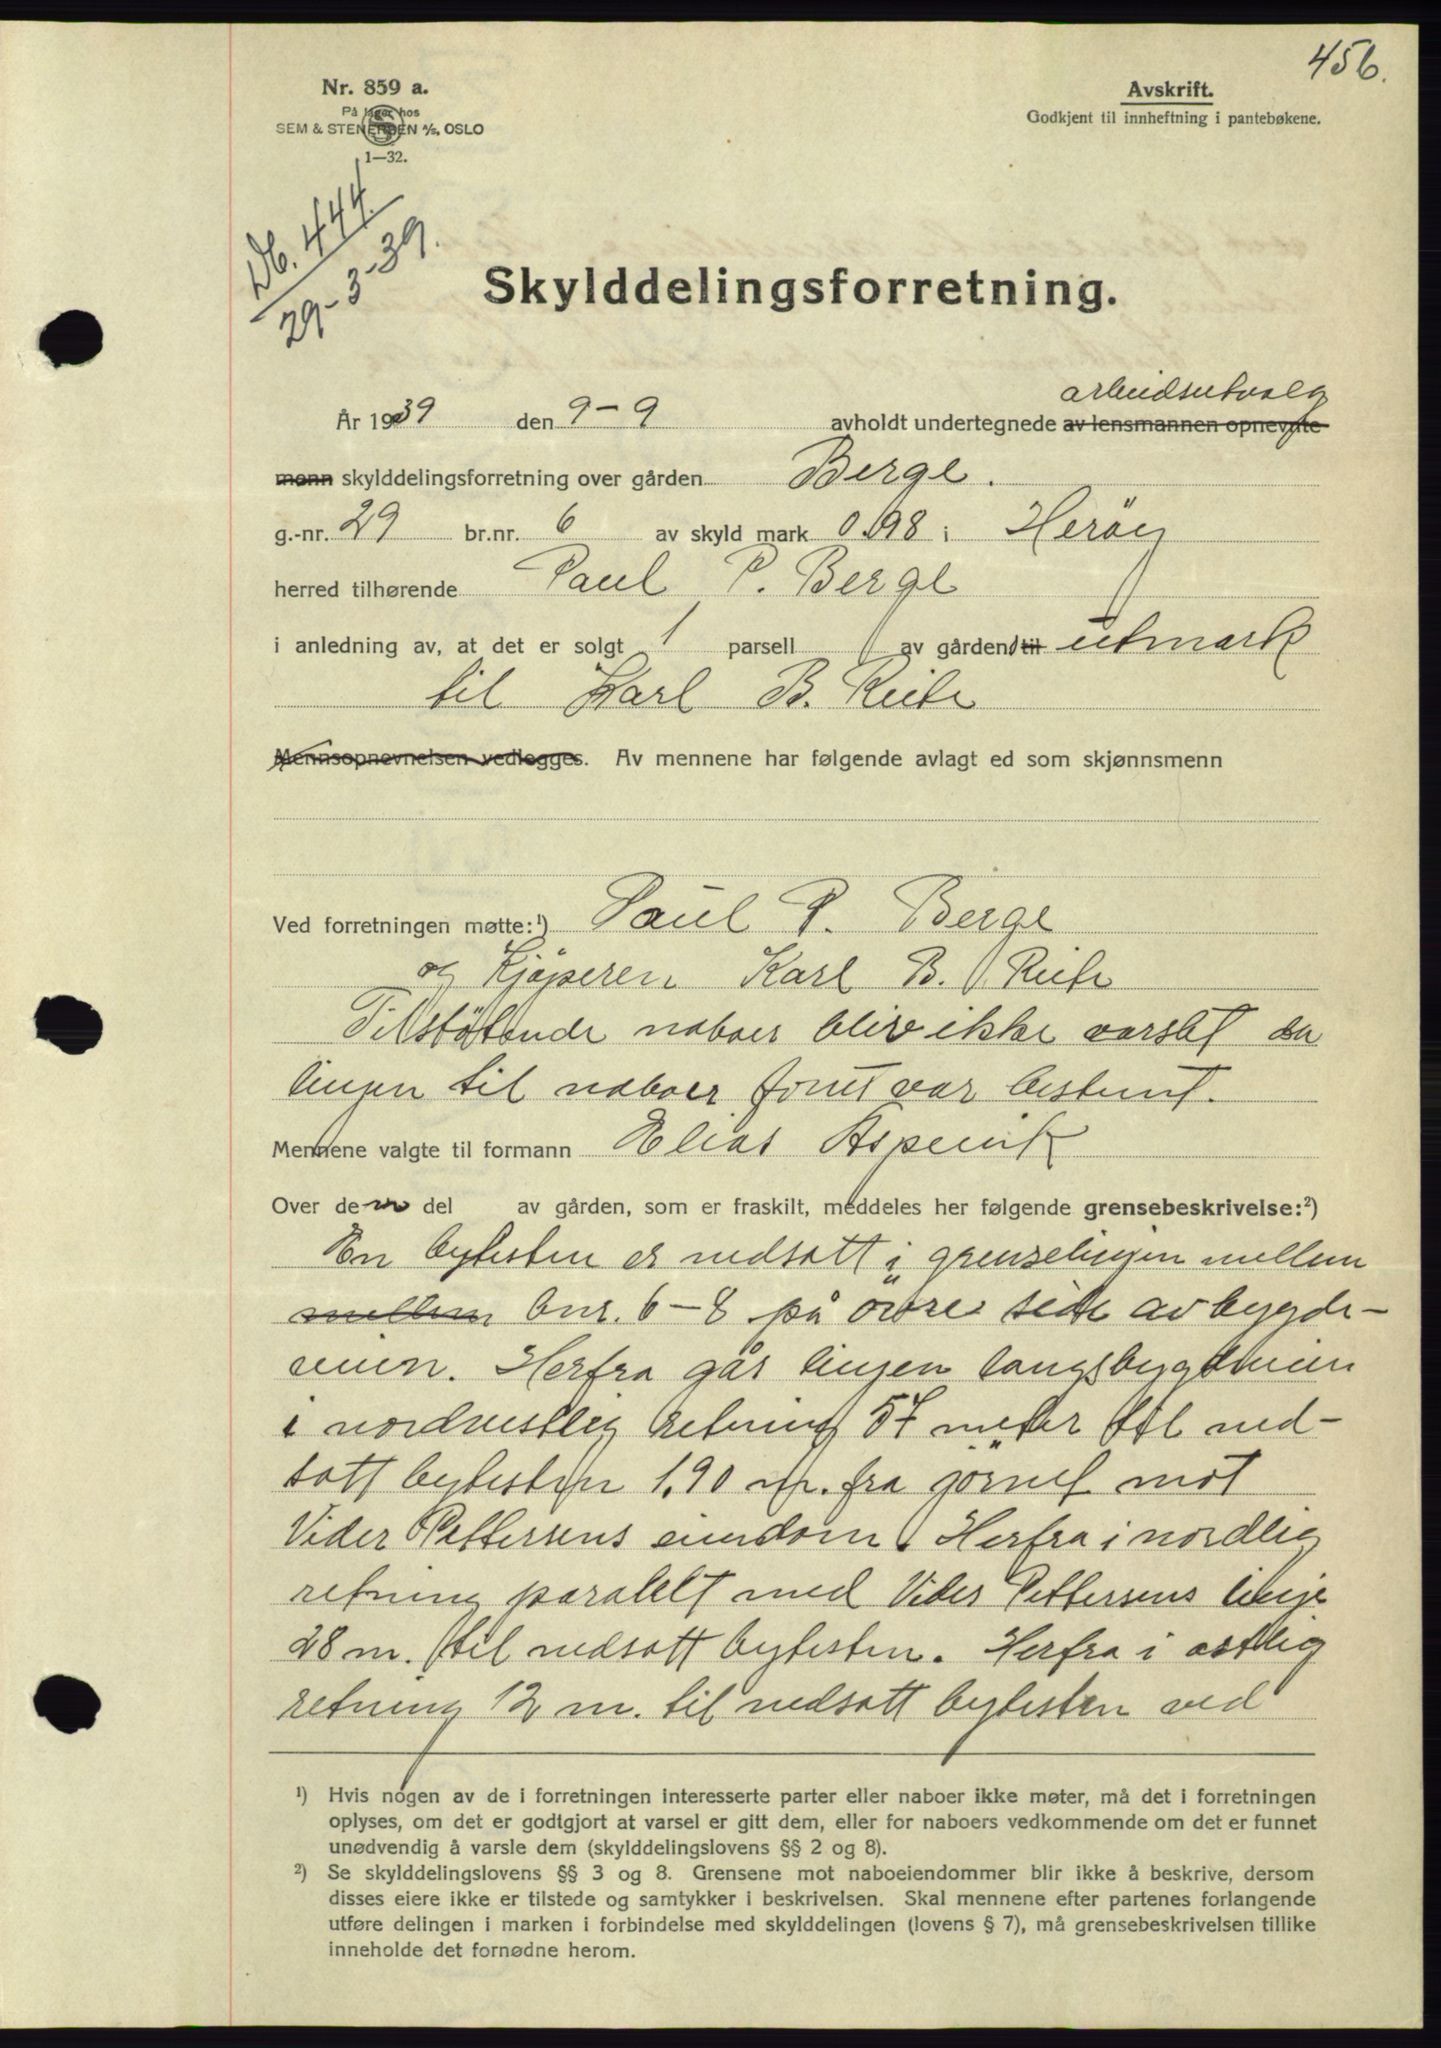 456.
Nr. 859 a.
På lager hos
SEM & STENERSEN A/S, OSLO
1—32.
Avskrift.
Godkjent til innheftning i pantebøkene.
Db. 444.
29-3-39.
Skylddelingsforretning.
arbeidsutvalg
År 1939 den 9-9 avholdt undertegnede av lensmannen opnevnte
menn skylddelingsforretning over gården Berge.
g.-nr. 29 br.nr. 6 av skyld mark 0.98 i Heröy
herred tilhørende Paul P. Berge
i anledning av, at det er solgt 1 parsell av gårdens til utmark
til Karl B. Reite
Mennsopnevnelsen vedlegges. Av mennene har følgende avlagt ed som skjønnsmenn
Ved forretningen møtte:¹) Paul P. Berge
og Kjöperen Karl B. Reite
Tilstötende naboer blev ikke varslet da
linjen til naboer forut var bestemt.
Mennene valgte til formann Elias Aspevik
Over den del av gården, som er fraskilt, meddeles her følgende grensebeskrivelse:²)
En bytesten er nedsatt i grenselinjen mellem
mellem bnr. 6-8 på övre side av bygde-
veien. Herfra går linjen langs bygdeveien
i nordvestlig retning 57 meter til ned-
satt bytesten 1.90 m. fra gjeret mot
Vider Pettersens eiendom. Herfra i nordlig
retning paralelt med Vider Pettersens linje
28 m. til nedsatt bytesten. Herfra i östlig
retning 12 m. til nedsatt bytesten ved
¹) Hvis nogen av de i forretningen interesserte parter eller naboer ikke møter, må det i forretningen
oplyses, om det er godtgjort at varsel er gitt dem, eller for naboers vedkommende om det er funnet
unødvendig å varsle dem (skylddelingslovens §§ 2 og 8).
²) Se skylddelingslovens §§ 3 og 8. Grensene mot naboeiendommer blir ikke å beskrive, dersom
disses eiere ikke er tilstede og samtykker i beskrivelsen. Skal mennene efter partenes forlangende
utføre delingen i marken i forbindelse med skylddelingen (lovens § 7), må grensebeskrivelsen tillike
inneholde det fornødne herom.